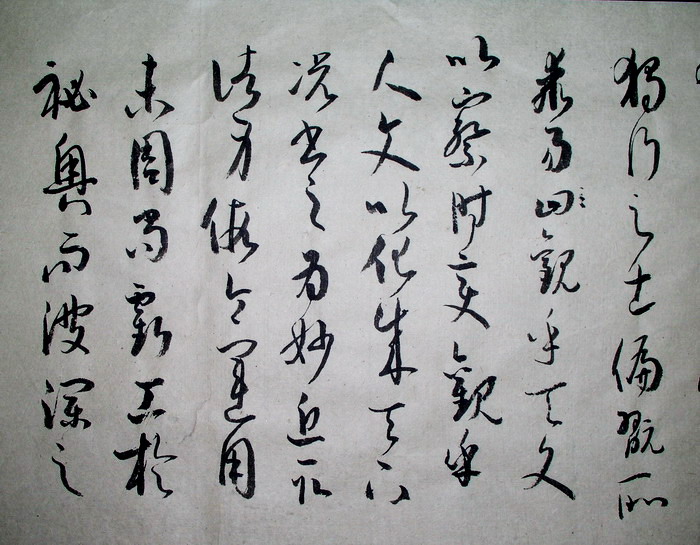 獨行之士偏翫所
乖易曰觀乎天文
以察時變觀乎
人文以化成天下
況書之為妙近取
諸身假令運用
未周尚虧工於
祕奧而波瀾之